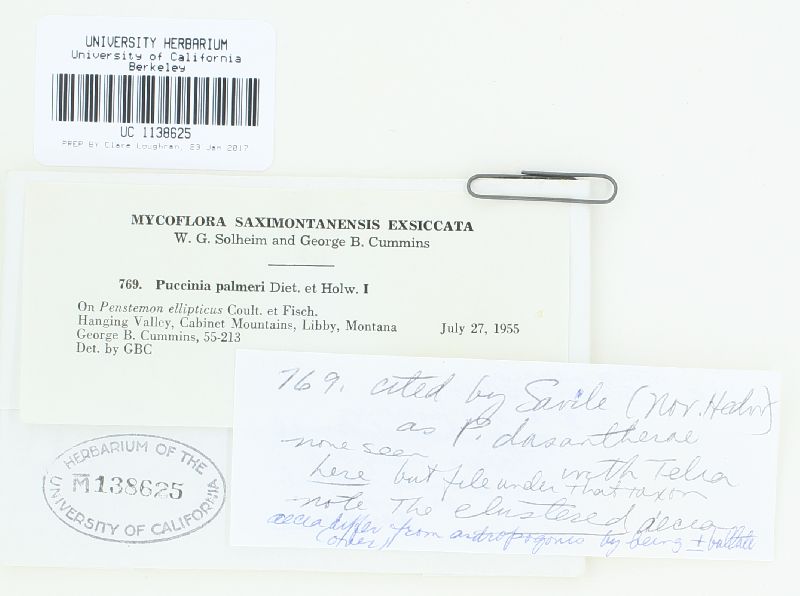 UNIVERSITY HERBARIUM
University of California
Berkeley
UC 1138625
PREP BY Clare Loughran, 23 Jan 2017
MYCOFLORA SAXIMONTANENSIS EXSICCATA
W. G. Solheim and George B. Cummins
769. Puccinia palmeri Diet. et Holw. I
On Penstemon ellipticus Coult. et Fisch.
Hanging Valley, Cabinet Mountains, Libby, Montana July 27, 1955
George B. Cummins, 55-213
Det. by GBC
769. cited by Savile (Nov. Hedw)
as P. dasantherae
none seen with Telia
here but file under that taxon
note The clustered aecia
aecia differ from andropogonis by being ± bullate
(over)
HERBARIUM OF THE
M1138625
UNIVERSITY OF CALIFORNIA